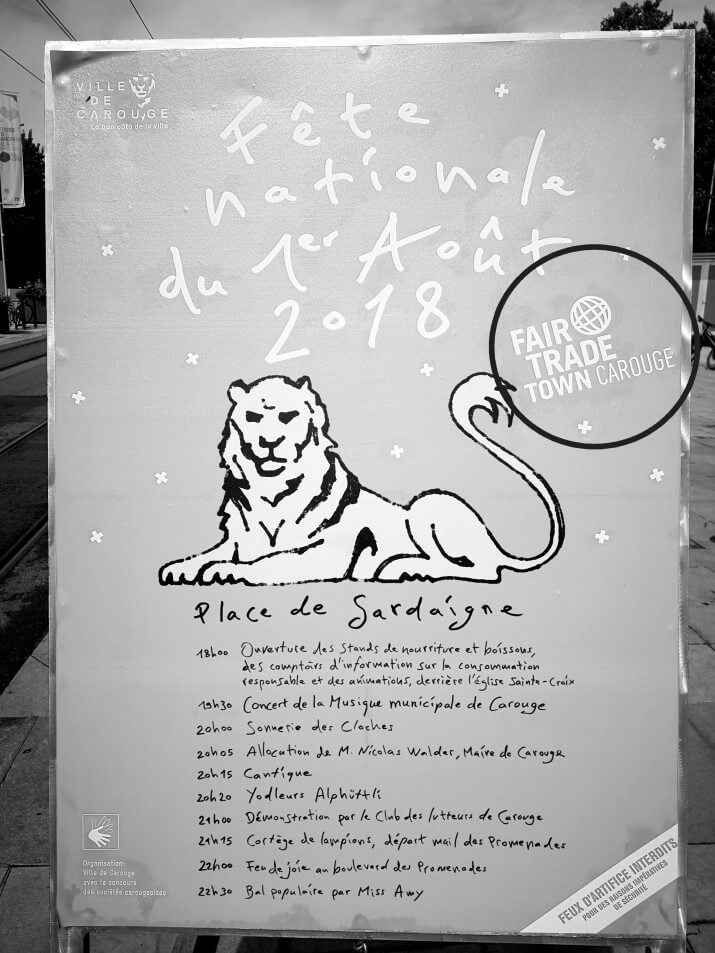 VILLE
DE
CAROUGE
Le bon côté de la ville
Fête
nationale
du 1er Août
2018
FAIR
TRADE
TOWN CAROUGE
Place de Sardaigne
18h00 Ouverture des stands de nourriture et boissons,
des comptoirs d'information sur la consommation
responsable et des animations, derrière l'église Sainte-Croix
19h30 Concert de la Musique municipale de Carouge
20h00 Sonnerie des Cloches
20h05 Allocution de M. Nicolas Walder, Maire de Carouge
20h15 Cantique
20h20 Yodleurs Alphüttli
21h00 Démonstration par le Club des lutteurs de Carouge
21h15 Cortège de lampions, départ mail des Promenades
22h00 Feu de joie au boulevard des Promenades
22h30 Bal populaire par Miss Amy
Organisation:
Ville de Carouge
avec le concours
des sociétés carougeoises
FEUX D'ARTIFICE INTERDITS
POUR DES RAISONS IMPÉRATIVES
DE SÉCURITÉ